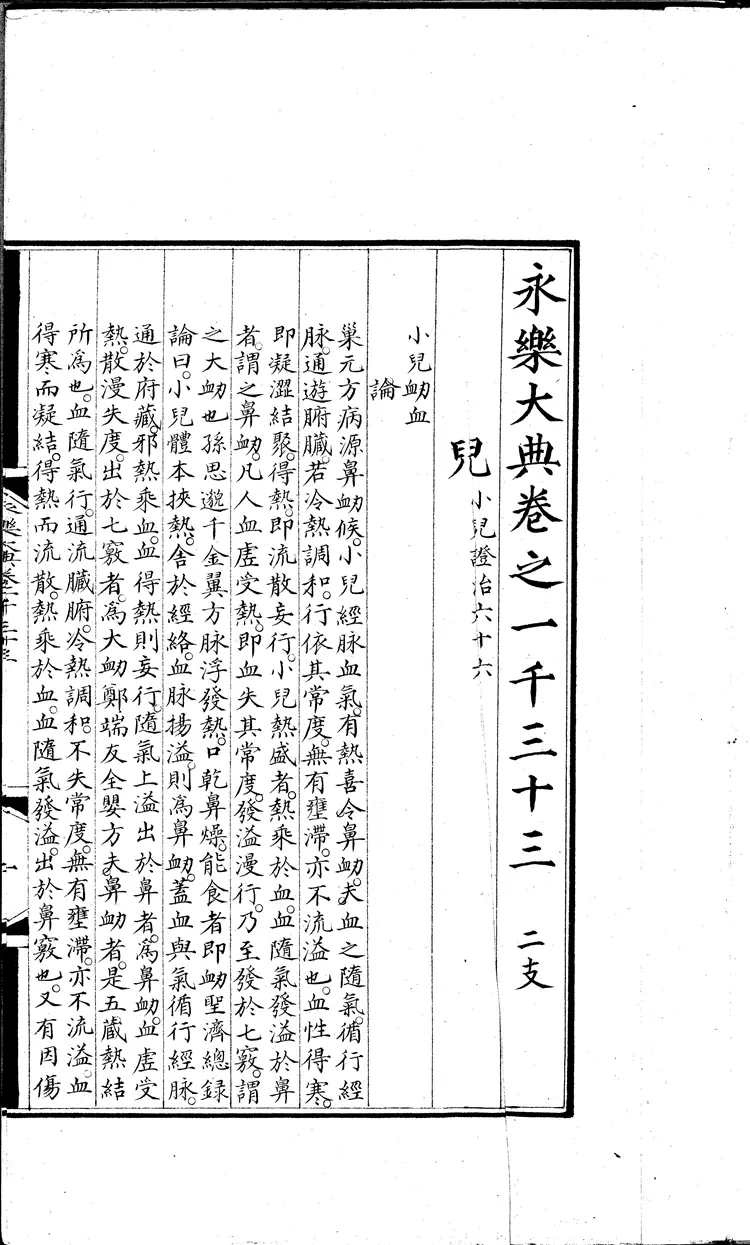 永樂大典卷之一千三十三 二支
兒 小兒證治六十六
小兒衂血
論
巢元方病源鼻衂候。小兒經脉血氣。有熱喜令鼻衂。夫血之隨氣。循行經
脉。通遊腑臓。若冷熱調和。行依其常度。無有壅滯。亦不流溢也。血性得寒。
即凝澀結聚。得熱。即流散妄行。小兒熱盛者。熱乘於血。血隨氣發溢於鼻
者。謂之鼻衂。凡人血虛受熱。即血失其常度。發溢漫行。乃至發於七竅。謂
之大衂也孫思邈千金翼方脉浮發熱。口乾鼻燥。能食者即衂聖濟總錄
論曰。小兒體本挾熱。舍於經絡。血脉揚溢。則爲鼻衂。蓋血與氣循行經脉。
通於府藏。邪熱乘血。血得熱則妄行。隨氣上溢出於鼻者。爲鼻衂。血虛受
熱。散漫失度。出於七竅者。爲大衂鄭端友全嬰方夫鼻衂者。是五藏熱結
所爲也。血隨氣行。通流臓腑。冷熱調和。不失常度。無有壅滯。亦不流溢。血
得寒而凝結。得熱而流散。熱乘於血。血隨氣發溢。出於鼻竅也。又有因傷
永樂大典卷一千三十三
一